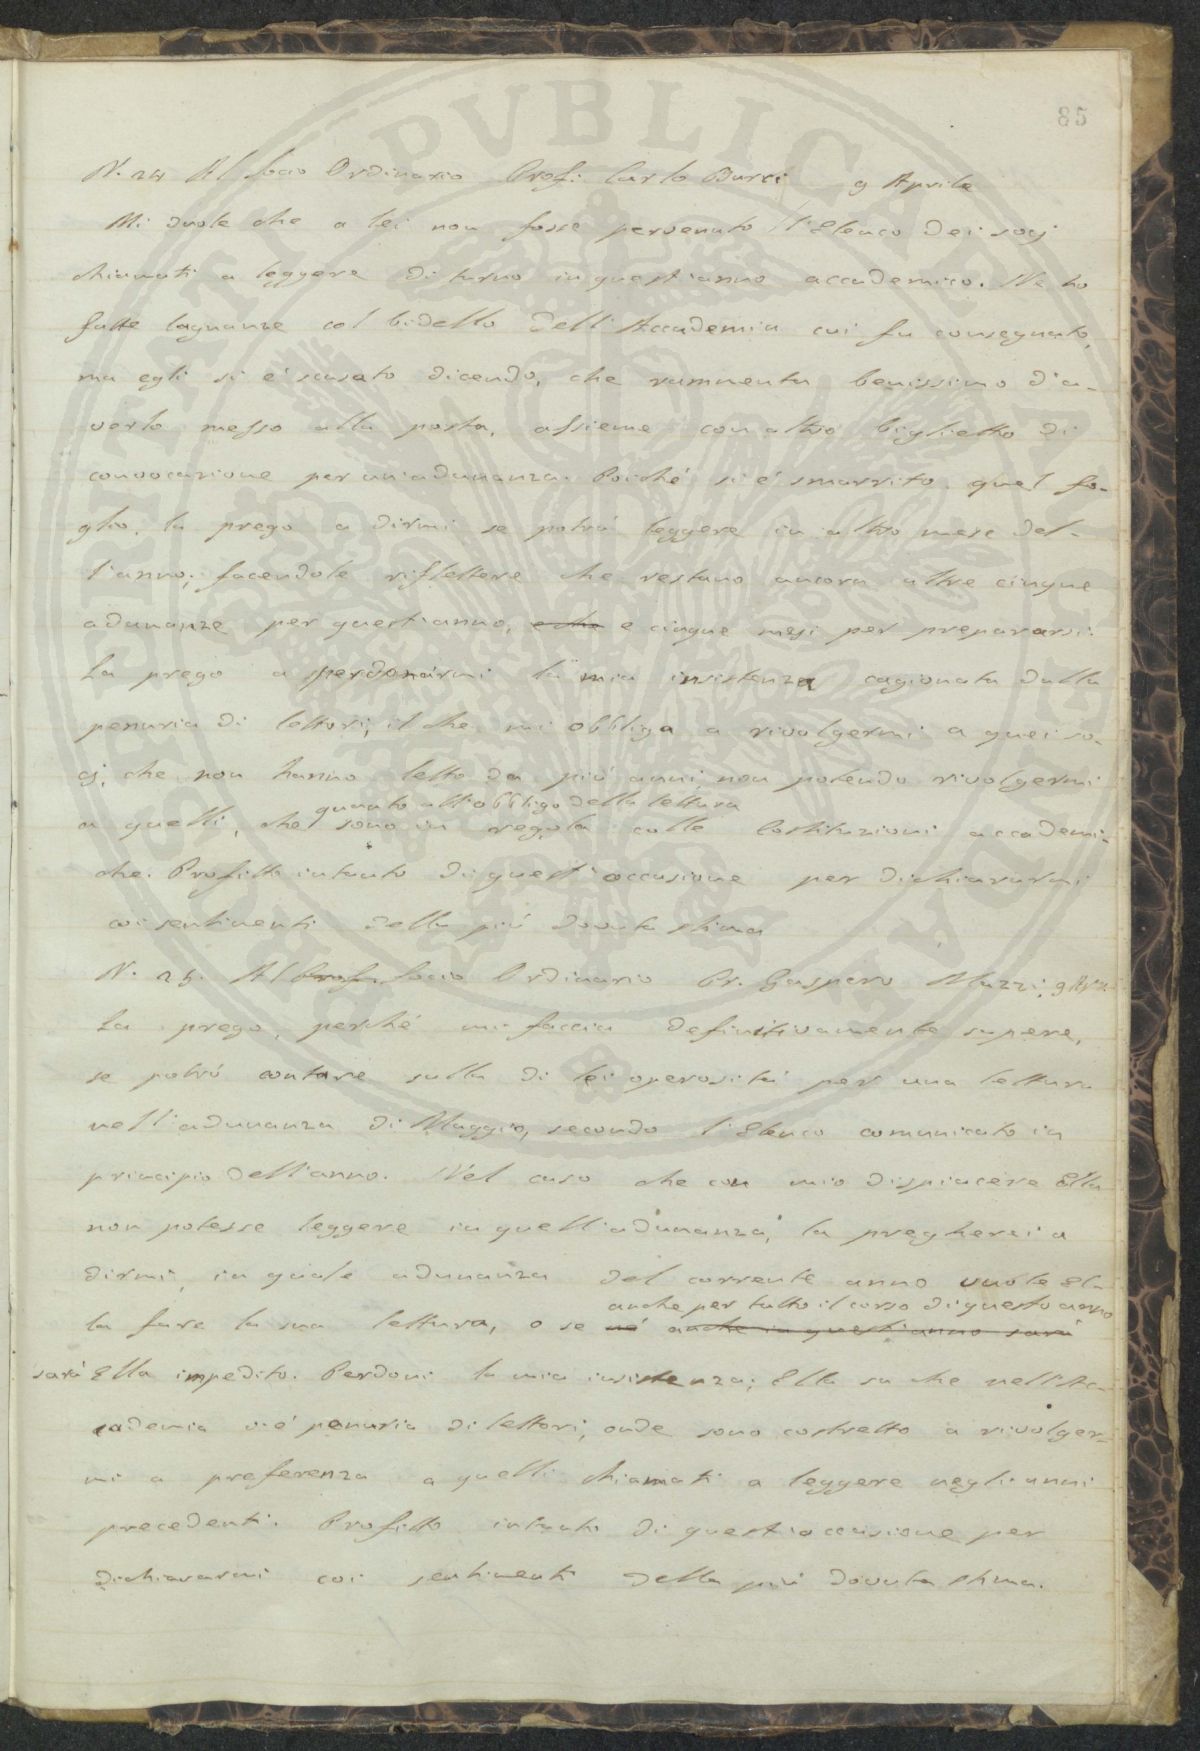 85
N. 24 Al Socio Ordinario Prof: Carlo Burci 9 Aprile
Mi duole che a lei non fosse pervenuto l'Elenco dei socj
chiamati a leggere di turno in quest'anno accademico. Ne ho
fatte lagnanze col bidello dell'Accademia cui fu consegnato,
ma egli si è scusato dicendo, che rammenta benissimo d'a-
verlo messo alla posta, assieme con altro biglietto di
convocazione per un'adunanza. Poiché si è smarrito quel fo-
glio, la prego a dirmi se potrà leggere in altro mese del-
l'anno; facendole riflettere che restano ancora altre cinque
adunanze per quest'anno, e cinque mesi per prepararsi.
La prego a perdonarmi la mia insistenza cagionata dalla
penuria di lettori; il che mi obbliga a rivolgermi a quei so-
cj, che non hanno letto da più anni, non potendo rivolgermi
quanto all'obbligo della lettura
a quelli, che sono in regola colle Costituzioni accademi-
che. Profitto intanto di quest'occasione per dichiararmi
coi sentimenti della più dovuta stima
N. 25. Al Prof. Socio Ordinario Dr. Gaspero Mazzi, 9 Aprile
La prego, perché mi faccia definitivamente sapere,
se potrò contare sulla di lei operosità per una lettura
nell'adunanza di Maggio, secondo l'Elenco comunicato in
principio dell'anno. Nel caso che con mio dispiacere Ella
non potesse leggere in quell'adunanza, la pregherei a
dirmi, in quale adunanza del corrente anno vuole El-
anche per tutto il corso di questo anno
la fare la sua lettura, o se né anche in quest'anno sarà
sarà Ella impedito. Perdoni la mia insistenza; Ella sa che nell'Ac-
cademia v'è penuria di lettori, onde sono costretto a rivolger-
mi a preferenza a quelli chiamati a leggere negli anni
precedenti. Profitto intanto di quest'occasione per
dichiararmi coi sentimenti della più dovuta stima.